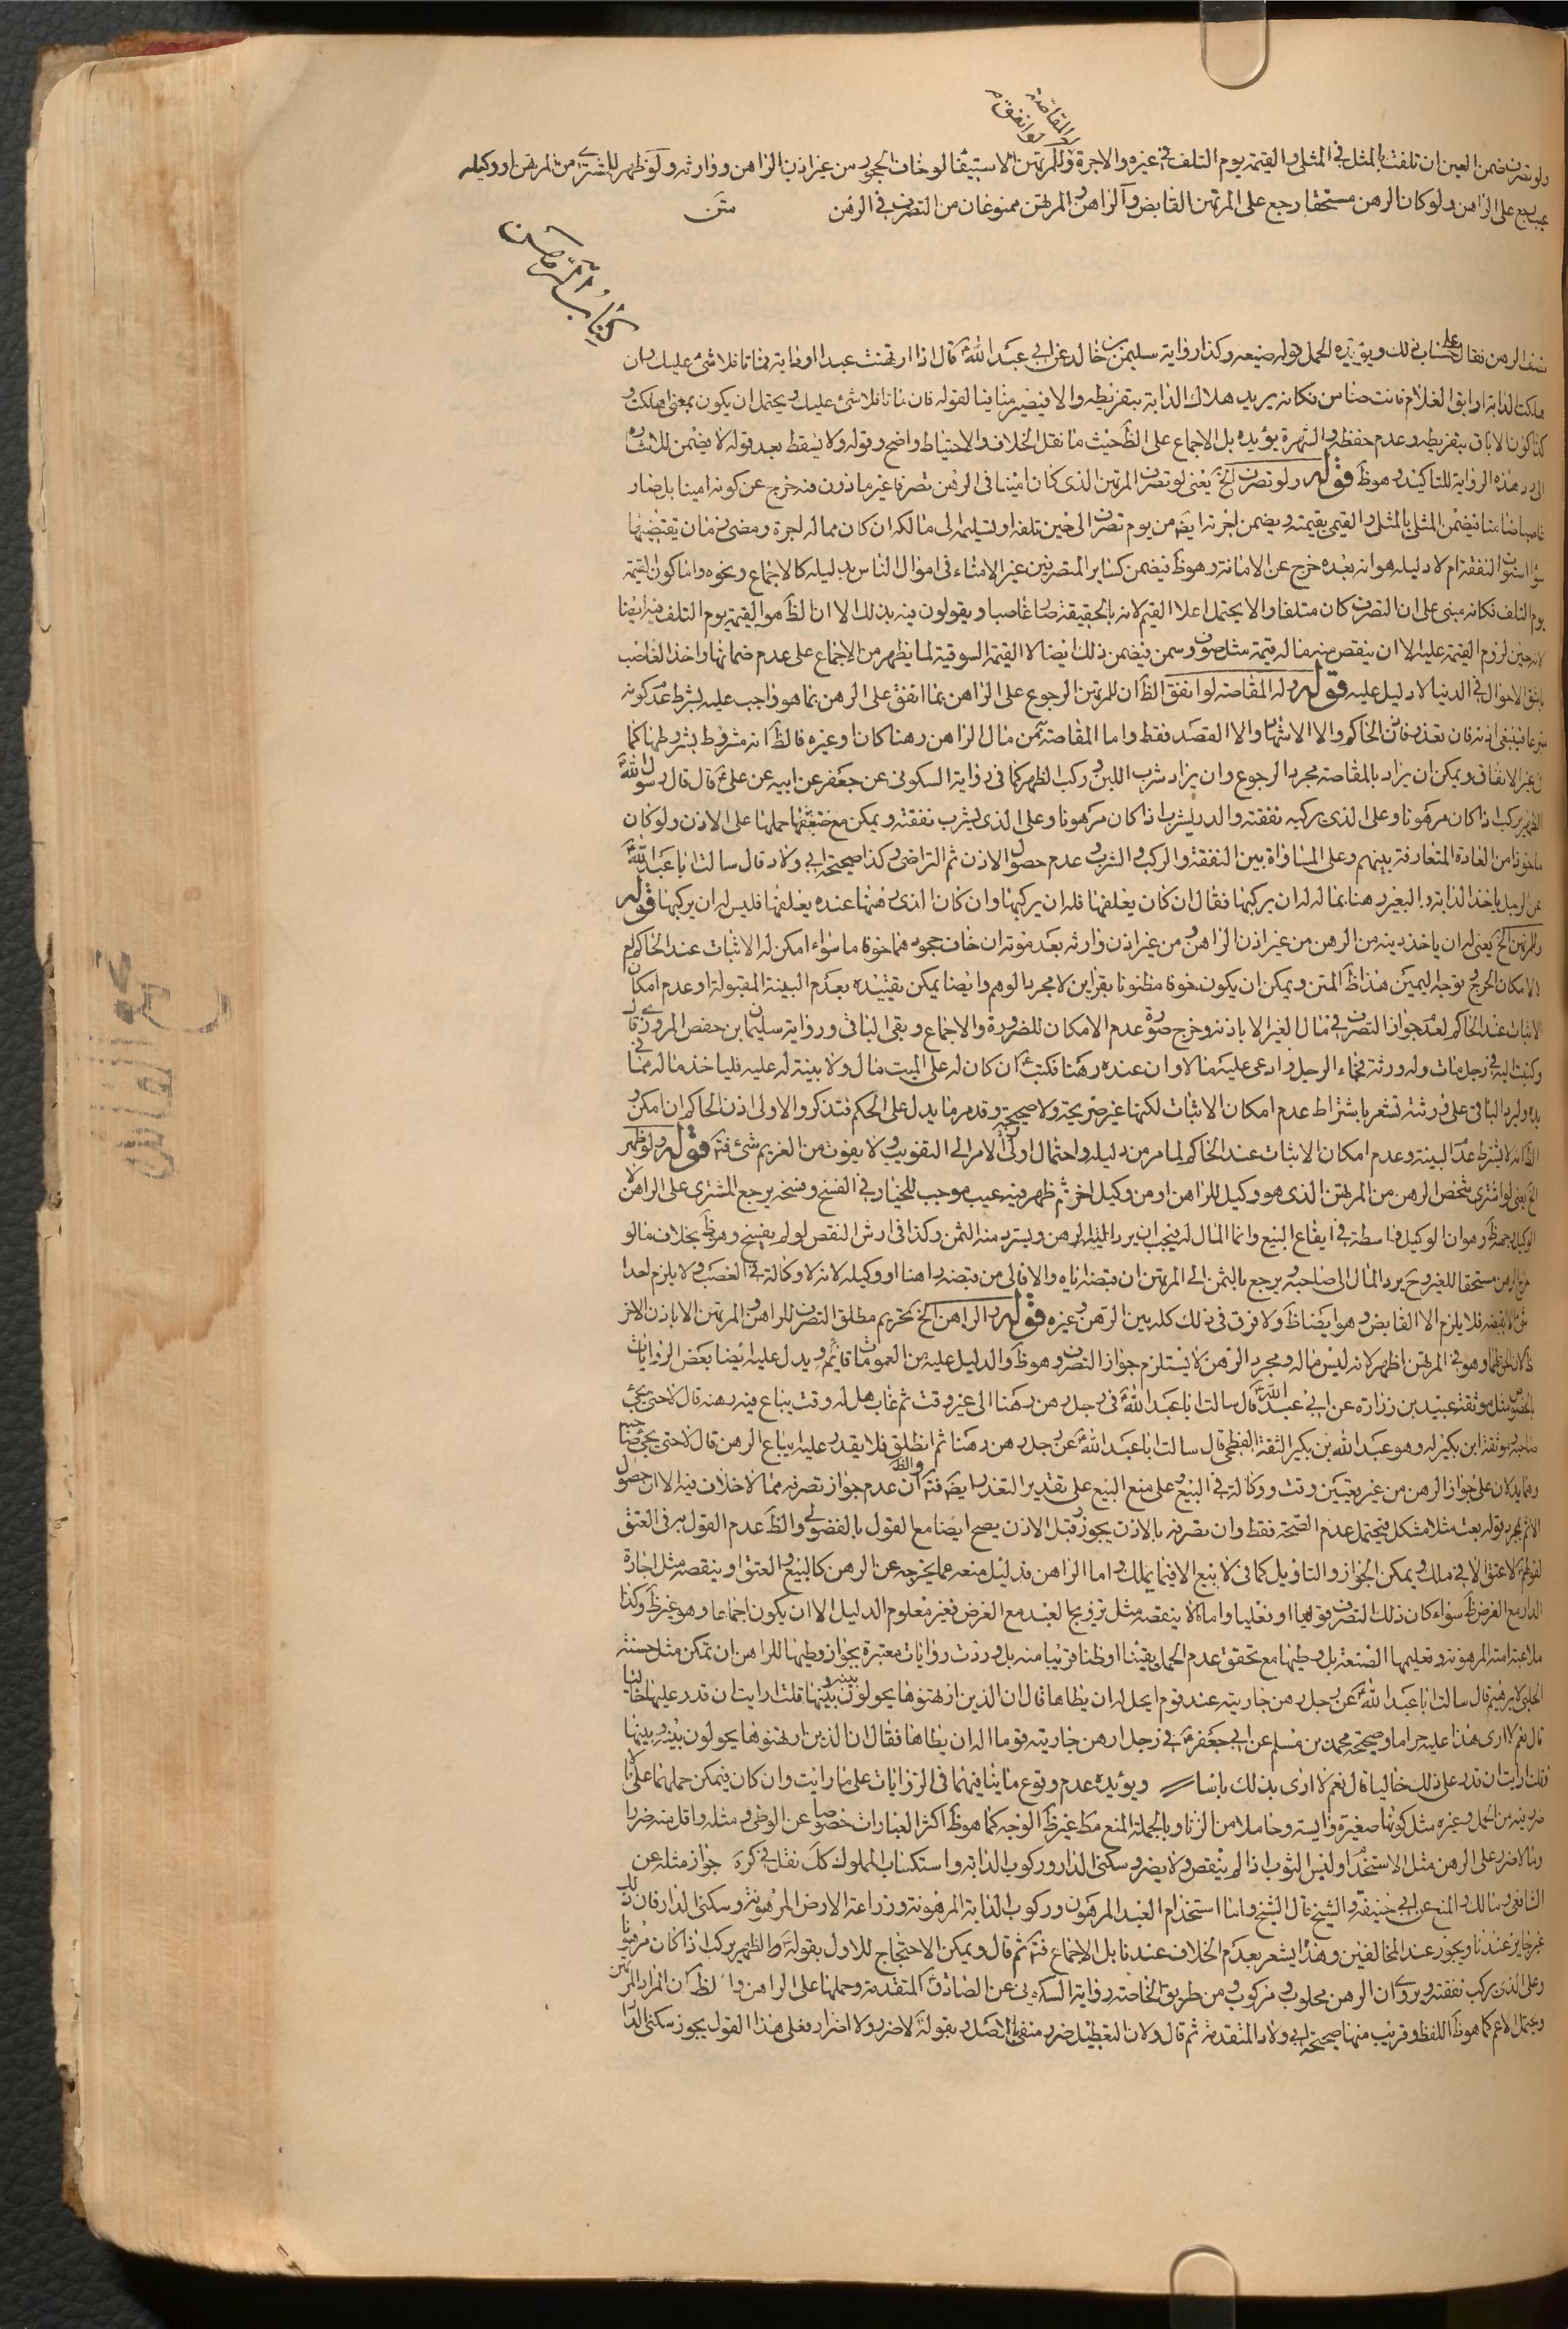 وله المقاصة
لو انفق م
ولو تصرف ضمن العين ان تلفت بالمثل في المثلي والقيمة يوم التلف في غيره والاجرة وللمرتهن الاستيفا لو خاف الجحود من غير اذن الراهن ووارثه ولو ظهر للمشتري من المرتهن او وكيله
عيب رجع على الراهن ولو كان الرهن مستحقا رجع على المرتهن القابض والراهن والمرتهن ممنوعان من التصرف في الرهن متن
كتاب الرهن
نصف الرهن فقال على حساب ذلك ويؤيده الحمل قوله ضيعه وكذا رواية سليمن بن خالد عن ابي عبد الله قال اذا ارتهنت عبدا او دابة فماتا فلا شئ عليك وان
هلكت الدابة او ابق الغلام فانت ضامن فكانه يريد هلاك الدابة بتفريطه والا فيصير منافيا لقوله فان ماتا فلا شئ عليك ويحتمل ان يكون بمعنى اهلكت و
كذا كون الاباق بتفريطه وعدم حفظه والشهرة يؤيده بل الاجماع على الظ حيث ما نقل الخلاف والاحتياط واضح وقوله ولا يسقط بعد قوله لا يضمن للاشارة
الى رد هذه الرواية للتاكيد وهو ظ قوله ولو تصرف الخ يعني لو تصرف المرتهن الذي كان امينا في الرهن تصرفا غير ماذون فيه خرج عن كونه امينا بل صار
غاصبا ضامنا فيضمن المثل بالمثلي والقيمي بقيمته ويضمن اجرته ايض من يوم تصرف الى حين تلفه او تسليمه الى مالكه ان كان مما له اجرة ومضى زمان يقتضيها
سواء استوفى النفقة ام لا دليله هو انه بعده خرج عن الامانة وهو ظ فيضمن كساير المتصرفين غير الامناء في اموال الناس بدليله كالاجماع ونحوه واما كون القيمة
يوم التلف فكانه مبني على ان التصرف كان متلفا والا يحتمل اعلا القيم لانه بالحقيقة صار غاصبا ويقولون فيه بذلك الا ان الظ هو القيمة يوم التلف فيه ايضا
لانه حين لزوم القيمة عليه الا ان ينقص منه ما له قيمة مثل صوف وسمن فيضمن ذلك ايضا لا القيمة السوقية لما يظهر من الاجماع على عدم ضمانها واخذ الغاصب
باشق الاحوال في الدنيا لا دليل عليه قوله وله المقاصة لو انفق الظ ان للمرتهن الرجوع على الراهن بما انفق على الرهن بما هو واجب عليه بشرط عدم كونه
متبرعا فينبغي اذنه فان تعذر فاذن الحاكم والا الاشهاد والا القصد فقط واما المقاصة من مال الراهن رهنا كان او غيره فالظ انه مشروط بشروطها كما
في غير الانفاق ويمكن ان يراد بالمقاصة مجرد الرجوع وان يراد شرب اللبن وركب الظهر كما في رواية السكوني عن جعفر عن ابيه عن علي قال قال رسول الله
الظهر يركب اذا كان مرهونا وعلى الذي يركبه نفقته والدر يشرب اذا كان مرهونا وعلى الذي يشرب نفقته ويمكن مع ضعفها حملها على الاذن ولو كان
ماخوذا من العادة المتعارفة بينهم وعلى المساواة بين النفقة والركب والشرب وعدم حصول الاذن ثم التراضي وكذا صحيحة ابي ولاد قال سالت ابا عبد الله
عن الرجل ياخذ الدابة والبعير رهنا بماله له ان يركبها فقال ان كان يعلفها فله ان يركبها وان كان الذي رهنها عنده يعلفها فليس له ان يركبها قوله
وللمرتهن الخ يعني له ان ياخذ دينه من الرهن من غير اذن الراهن ومن غير اذن وارثه بعد موته ان خاف جحودهما خوفا ما سواء امكن له الاثبات عند الحاكم ام
لا لامكان الحرج بتوجه اليمين هذا ظ المتن ويمكن ان يكون خوفا مظنونا بقراين لا مجرد الوهم وايضا يمكن تقييده بعدم البينة المقبولة او عدم امكان
الاثبات عند الحاكم لعدم جواز التصرف في مال الغير الا باذنه وخرج صورة عدم الامكان للضرورة والاجماع وبقي الباقي ورواية سليمان بن حفص المروزي قال
وكتبت اليه في رجل مات وله ورثة فجاء الرجل وادعى عليه مالا وان عنده رهنا فكتب ان كان له على الميت مال ولا بينة له عليه فلياخذ ماله مما في
يده وليرد الباقي على ورثته تشعر باشتراط عدم امكان الاثبات لكنها غير صريحة ولا صحيحة وقد مر ما يدل على الحكم فتذكر والاولى اذن الحاكم ان امكن و
الظ انه لا يشترط عدم البينة وعدم امكان الاثبات عند الحاكم لما مر من دليله واحتمال اول الامر الى التفويت ولا يفوت من الغريم شئ فت قوله ولو ظهر
الخ يعني لو اشترى شخص الرهن من المرتهن الذي هو وكيل للراهن او من وكيل اخر ثم ظهر فيه عيب موجب للخيار في الفسخ وفسخه يرجع المشتري على الراهن لا
الوكيل وجهه ظ وهو ان الوكيل واسطة في ايقاع البيع وانما المال له فيجب ان يرد اليه الرهن ويسترد منه الثمن وكذا في ارش النقص لو لم يفسخ وهو ظ بخلاف ما لو
خرج الرهن مستحقا للغير وح يرد المال الى صاحبه ويرجع بالثمن الى المرتهن ان قبضه اياه والا فالى من قبضه راهنا او وكيله لانه لا وكالة في الغصب ولا يلزم احدا
شئ الا بقبضه فلا يلزم الا القابض وهو ايضا ظ ولا فرق في ذلك كله بين الرهن وغيره قوله والراهن الخ تحريم مطلق التصرف للراهن والمرتهن الا باذن الاخر
ظ وهو في المرتهن اظهر لانه ليس ماله ومجرد الرهن لا يستلزم جواز التصرف وهو ظ والدليل عليه من العمومات قائم ويدل عليه ايضا بعض الروايات
بالخصوص مثل موثقة عبيد بن زرارة عن ابي عبد الله قال سالت ابا عبد الله في رجل رهن رهنا الى غير وقت ثم غاب هل له وقت يباع فيه رهنه قال لا حتى يجئ
صاحبه وموثقة ابن بكير له وهو عبد الله بن بكير الثقة الفطحي قال سالت ابا عبد الله عن رجل رهن رهنا ثم انطلق فلا يقدر عليه ايباع الرهن قال لا حتى يجئ صاحبه
وهما يدلان على جواز الرهن من غير تعيين وقت ووكالة في البيع وعلى منع البيع على تقدير التعذر ايض فت والظ ان عدم جواز تصرفه مما لا خلاف فيه الا ان حصول
الاثم بمجرد قوله بعت مثلا مشكل فيحتمل عدم الصحة فقط وان تصرفه بالاذن يجوز وقبل الاذن يصح ايضا مع القول بالفضولي والظ عدم القول به في العتق
لقولهم لا عتق الا في ملك ويمكن الجواز والتاويل كما في لا بيع الا فيما يملك واما الراهن فدليل منعه عما يخرجه عن الرهن كالبيع والعتق او ينقصه مثل اجارة
الدار مع الغرض ظ سواء كان ذلك التصرف قوليا او فعليا واما ما لا ينقصه مثل تزويج العبد مع الغرض فغير معلوم الدليل الا ان يكون اجماعا وهو غير ظ وكذا
ملاعبة امته المرهونة وتعليمها الصنعة بل وطيها مع تحقق عدم الحمل يقينا او ظنا قريبا منه بل وردت روايات معتبرة بجواز وطيها للراهن ان تمكن مثل حسنة
الحلبي لابرهيم قال سالت ابا عبد الله عن رجل رهن جاريته عند قوم ايحل له ان يطاها قال ان الذين ارتهنوها يحولون بينه وبينها قلت ارايت ان قدر عليها خاليا
قال نعم لا ارى هذا عليه حراما وصحيحة محمد بن مسلم عن ابي جعفر في رجل ارهن جاريته قوما اله ان يطاها فقال ان الذين ارتهنوها يحولون بينه وبينها
فقلت ارايت ان قدر على ذلك خاليا قال نعم لا ارى بذلك باسا ويؤيده عدم وقوع ما ينافيهما في الروايات على ما رايت وان كان فيمكن حملهما على ما لا
ضرر فيه من الحمل وغيره مثل كونها صغيرة وآيسة وحاملا من الزنا وبالجملة المنع مط غير ظ الوجه كما هو ظ اكثر العبارات خصوصا عن الوطي ومثله واقل منه ضررا
وما لا ضرر على الرهن مثل الاستخدام ولبس الثوب اذا لم ينقص ولا يضر وسكنى الدار وركوب الدابة واستكساب المملوك كل نقل في كره جواز مثله عن
الشافعي ومالك والمنع عن ابي حنيفة والشيخ قال الشيخ واما استخدام العبد المرهون وركوب الدابة المرهونة وزراعة الارض المرهونة وسكنى الدار فان ذلك
غير جايز عندنا ويجوز عند المخالفين وهذا يشعر بعدم الخلاف عندنا بل الاجماع فت ثم قال ويمكن الاحتجاج للاول بقوله والظهر يركب اذا كان مرهونا
وعلى الذي يركب نفقته وروي ان الرهن محلوب ومركوب ومن طريق الخاصة رواية السكوني عن الصادق المتقدمة وحملها على الراهن والظ كان المراد المرتهن
ويحتمل الاعم كما هو ظ اللفظ وقريب منها صحيحة ابي ولاد المتقدمة ثم قال ولان التعطيل ضرر منفي بالاصل وبقوله لا ضرر ولا اضرار فعلى هذا القول يجوز سكنى الدار